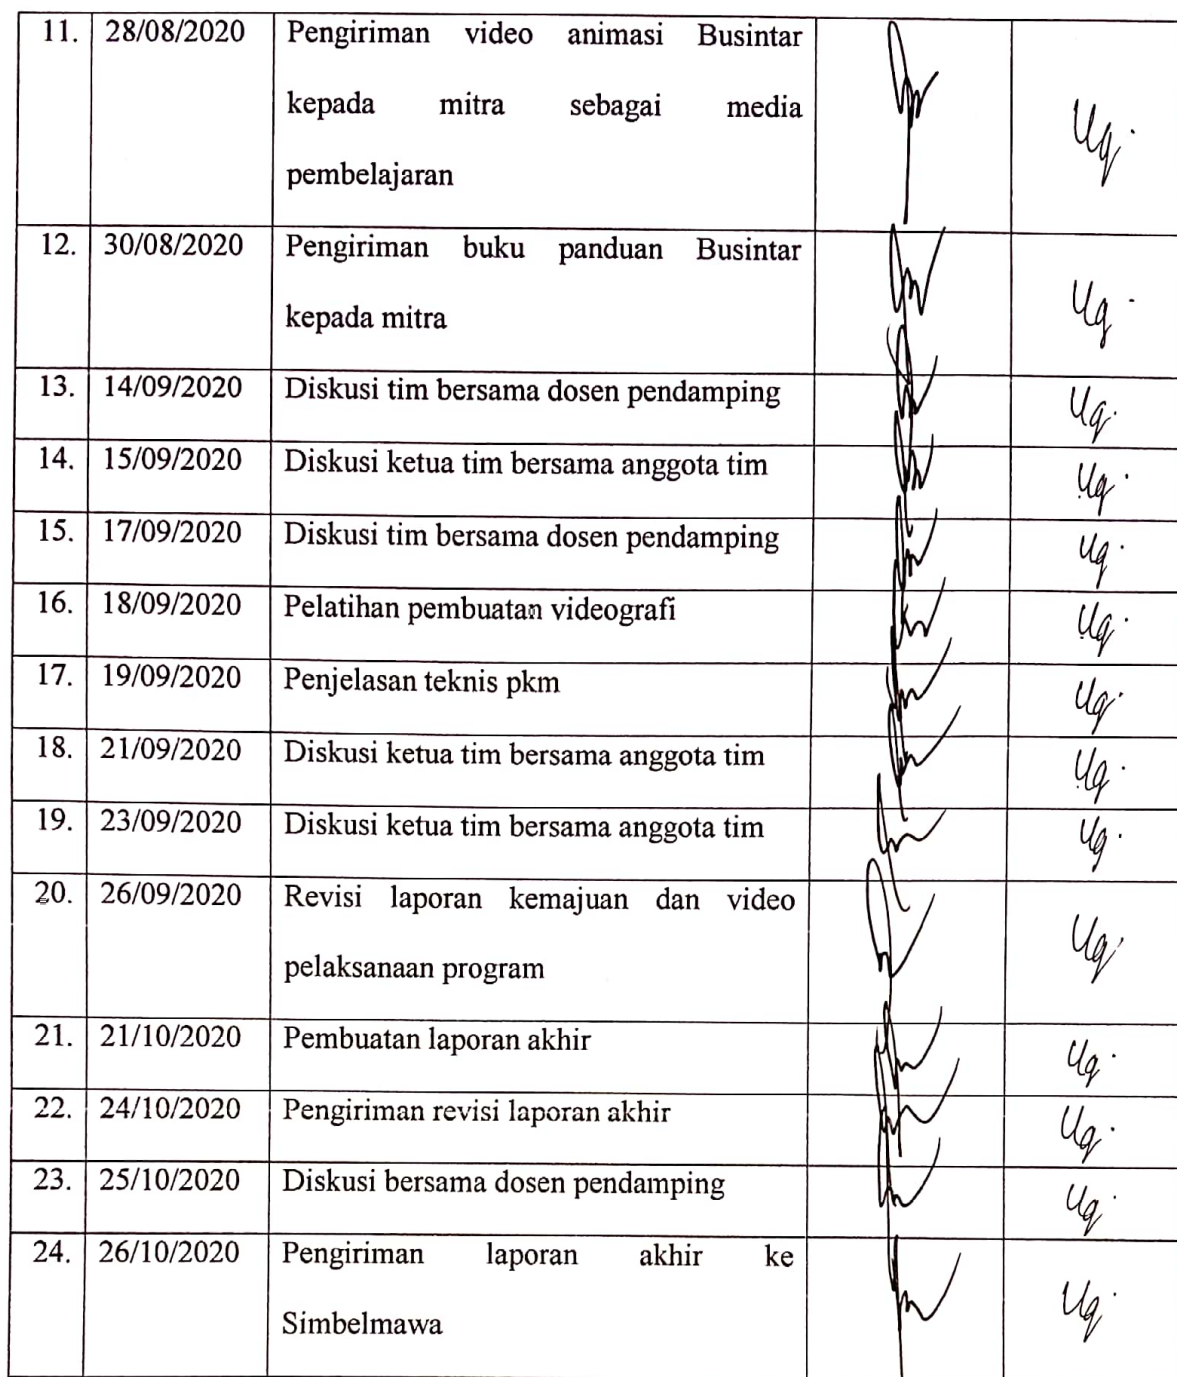 11. 28/08/2020 Pengiriman video animasi Busintar
kepada mitra sebagai media
pembelajaran
12. 30/08/2020 Pengiriman buku panduan Busintar
kepada mitra
13. 14/09/2020 Diskusi tim bersama dosen pendamping
14. 15/09/2020 Diskusi ketua tim bersama anggota tim
15. 17/09/2020 Diskusi tim bersama dosen pendamping
16. 18/09/2020 Pelatihan pembuatan videografi
17. 19/09/2020 Penjelasan teknis pkm
18. 21/09/2020 Diskusi ketua tim bersama anggota tim
19. 23/09/2020 Diskusi ketua tim bersama anggota tim
20. 26/09/2020 Revisi laporan kemajuan dan video
pelaksanaan program
21. 21/10/2020 Pembuatan laporan akhir
22. 24/10/2020 Pengiriman revisi laporan akhir
23. 25/10/2020 Diskusi bersama dosen pendamping
24. 26/10/2020 Pengiriman laporan akhir ke
Simbelmawa